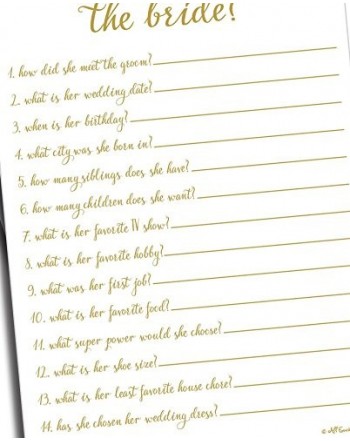 the bride!
1. how did she meet the groom?
2. what is her wedding date?
3. when is her birthday?
4. what city was she born in?
5. how many siblings does she have?
6. how many children does she want?
7. what is her favorite TV show?
8. what is her favorite hobby?
9. what was her first job?
10. what is her favorite food?
11. what super power would she choose?
12. what is her shoe size?
13. what is her least favorite house chore?
14. has she chosen her wedding dress?
©